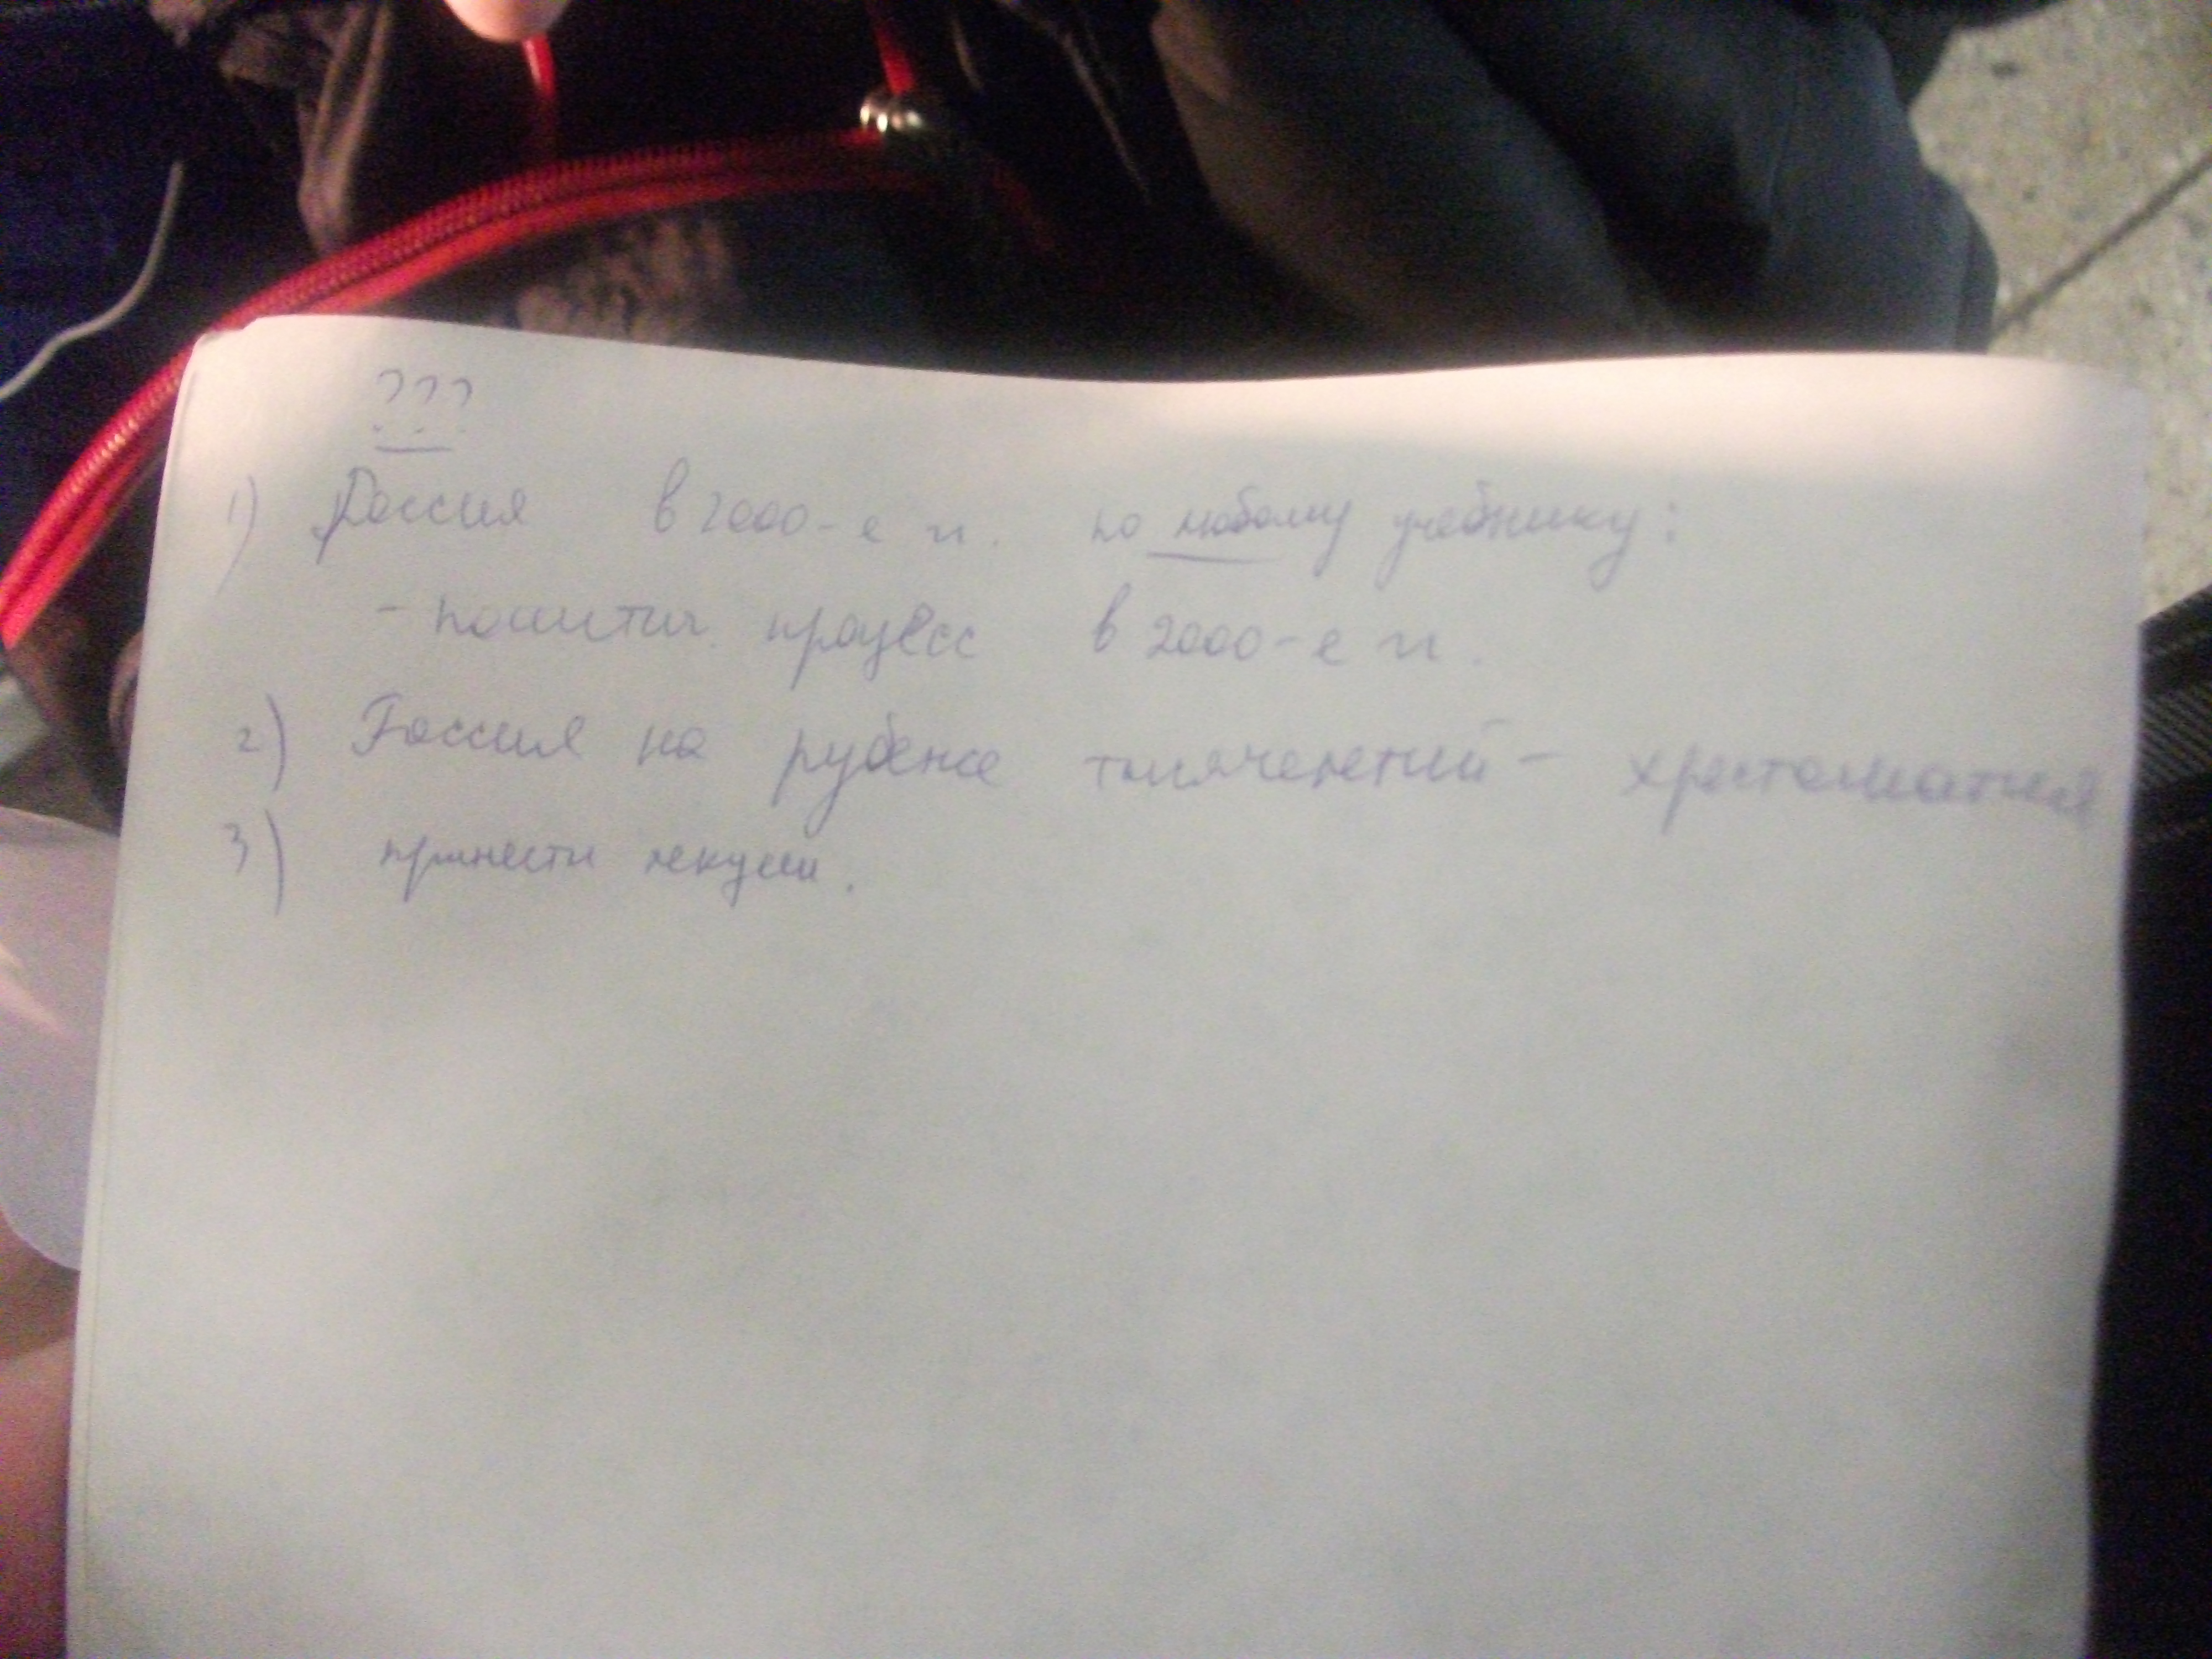 ???
1) Россия в 2000-е гг. по любому учебнику:
- политич. процесс в 2000-е гг.
2) Россия на рубеже тысячелетий - хрестоматия
3) принести лекции.